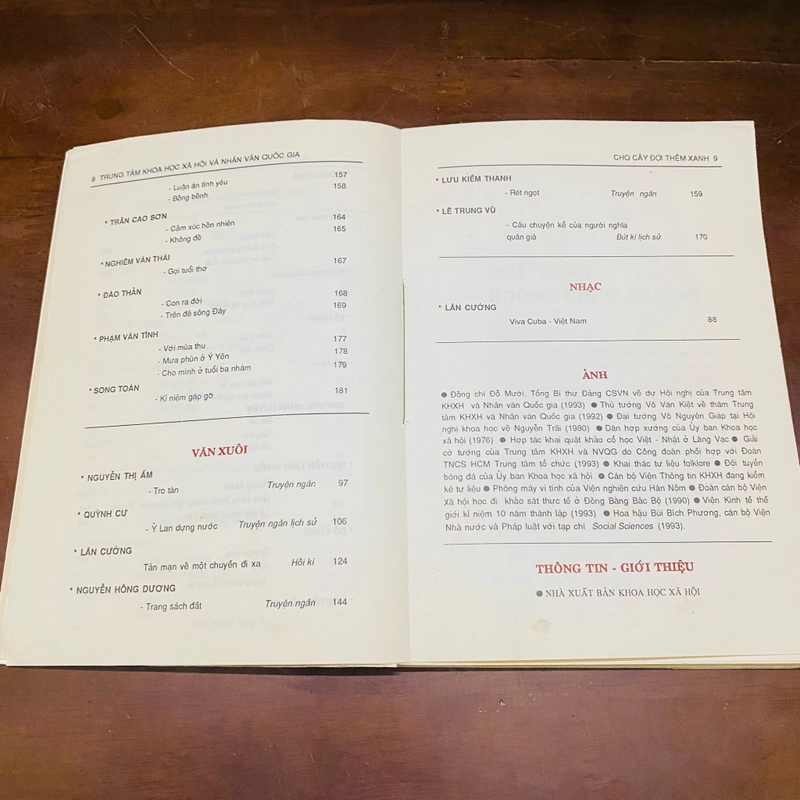 8 TRUNG TÂM KHOA HỌC XÃ HỘI VÀ NHÂN VĂN QUỐC GIA
- Luận án tình yêu 157
- Bông bềnh 158
* TRẦN CAO SƠN
- Cảm xúc hồn nhiên 164
- Không đề 165
* NGHIÊM VĂN THÁI
- Gọi tuổi thơ 167
* ĐÀO THẢN
- Con ra đời 168
- Trên đê sông Đáy 169
* PHẠM VĂN TÌNH
- Với mùa thu 177
- Mưa phùn ở Ý Yên 178
- Cho mình ở tuổi ba nhăm 179
* SONG TOÀN
- Kỉ niệm gặp gỡ 181
VĂN XUÔI
* NGUYỄN THỊ ẤM
- Tro tàn Truyện ngắn 97
* QUỲNH CƯ
- Ỷ Lan dựng nước Truyện ngắn lịch sử 106
* LÂN CƯỜNG
Tản mạn về một chuyến đi xa Hồi kí 124
* NGUYỄN HỒNG DƯƠNG
- Trang sách đất Truyện ngắn 144
CHO CÂY ĐỜI THÊM XANH 9
* LƯU KIẾM THANH
- Rét ngọt Truyện ngắn 159
* LÊ TRUNG VŨ
- Câu chuyện kể của người nghĩa
quân già Bút kí lịch sử 170
NHẠC
* LÂN CƯỜNG
Viva Cuba - Việt Nam 88
ẢNH
● Đồng chí Đỗ Mười, Tổng Bí thư Đảng CSVN về dự Hội nghị của Trung tâm
KHXH và Nhân văn Quốc gia (1993) ● Thủ tướng Võ Văn Kiệt về thăm Trung
tâm KHXH và Nhân văn Quốc gia (1992) ● Đại tướng Võ Nguyên Giáp tại Hội
nghị khoa học về Nguyễn Trãi (1980) ● Dàn hợp xướng của Uỷ ban Khoa học
xã hội (1976) ● Hợp tác khai quật khảo cổ học Việt - Nhật ở Làng Vạc ● Giải
cờ tướng của Trung tâm KHXH và NVQG do Công đoàn phối hợp với Đoàn
TNCS HCM Trung tâm tổ chức (1993) ● Khai thác tư liệu folklore ● Đội tuyển
bóng đá của Ủy ban Khoa học xã hội ● Cán bộ Viện Thông tin KHXH đang kiểm
kê tư liệu ● Phòng máy vi tính của Viện nghiên cứu Hán Nôm ● Đoàn cán bộ Viện
Xã hội học đi khảo sát thực tế ở Đồng Bằng Bắc Bộ (1990) ● Viện Kinh tế thế
giới kỉ niệm 10 năm thành lập (1993) ● Hoa hậu Bùi Bích Phương, cán bộ Viện
Nhà nước và Pháp luật với tạp chí Social Sciences (1993).
THÔNG TIN - GIỚI THIỆU
● NHÀ XUẤT BẢN KHOA HỌC XÃ HỘI